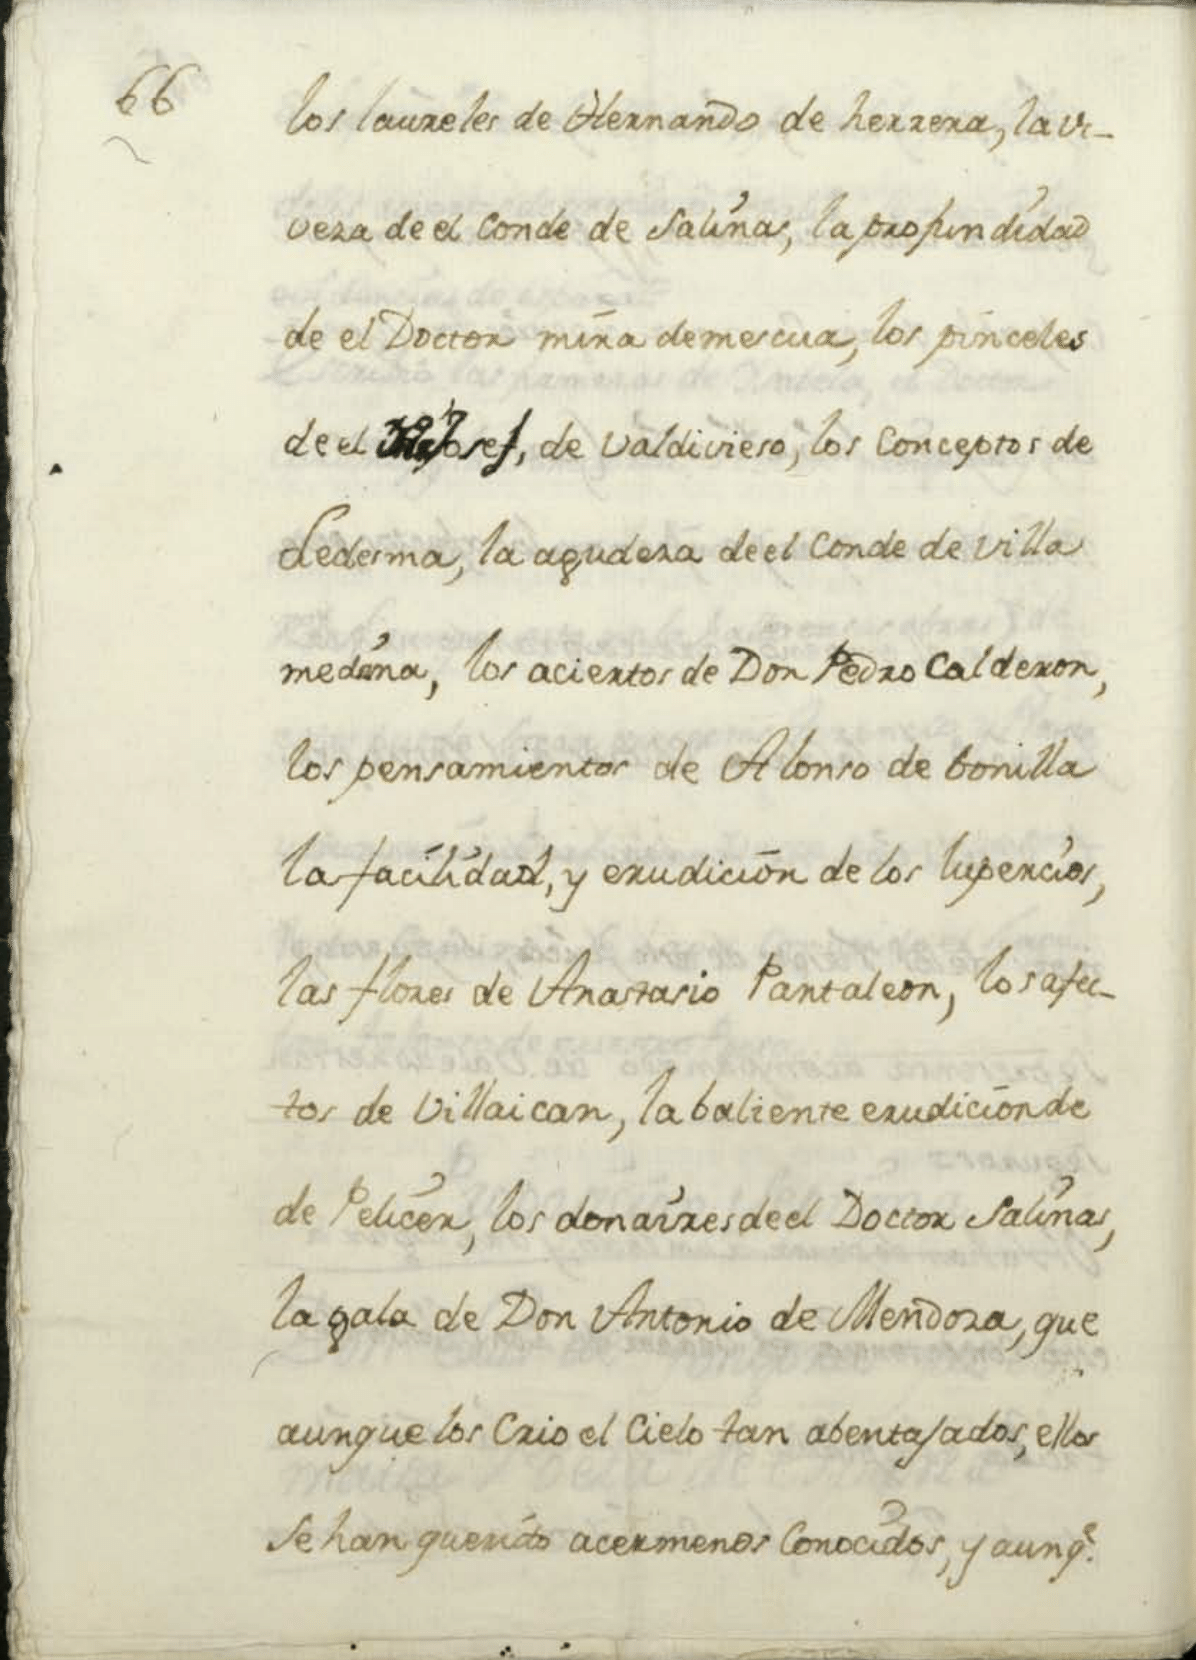 66
los laureles de Hernando de herrera, la vi-
veza de el Conde de Salinas, la profundidad
de el Doctor mira demescua, los pinceles
de el Josef, de Valdivieso, los Conceptos de
Ledesma, la agudeza de el Conde de Villa
mediana, los aciertos de Don Pedro Calderon,
los pensamientos de Alonso de bonilla
la facilidad, y erudicion de los lupercios,
las flores de Anastasio Pantaleon, los afec-
tos de Villaican, la baliente erudicion de
de Pelicer, los donaires de el Doctor Salinas,
la gala de Don Antonio de Mendoza, que
aunque los Crio el Cielo tan abentajados, ellos
se han querido acer menos Conocidos, y aunq.e